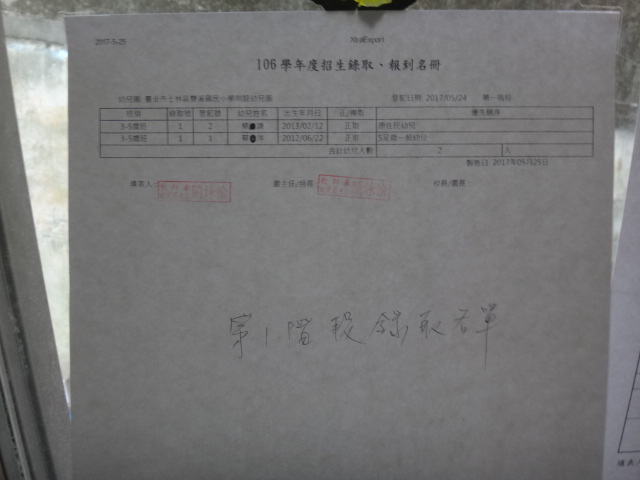 2017-5-25 XtraReport
106 學年度招生錄取、報到名冊
幼兒園 臺北市士林區雙溪國民小學附設幼兒園 登記日期 2017/05/24 第一階段
班別 錄取號 登記號 幼兒姓名 出生年月日 正/備取 優先順序
3-5歲班 1 2 2013/02/12 正取 原住民幼兒
3-5歲班 1 1 蔡 2012/06/22 正取 5足歲一般幼兒
合計幼兒人數 2 人
製表日 2017年05月25日
填表人: 園主任/組長: 校長/園長:
第1階段錄取名單
填表人